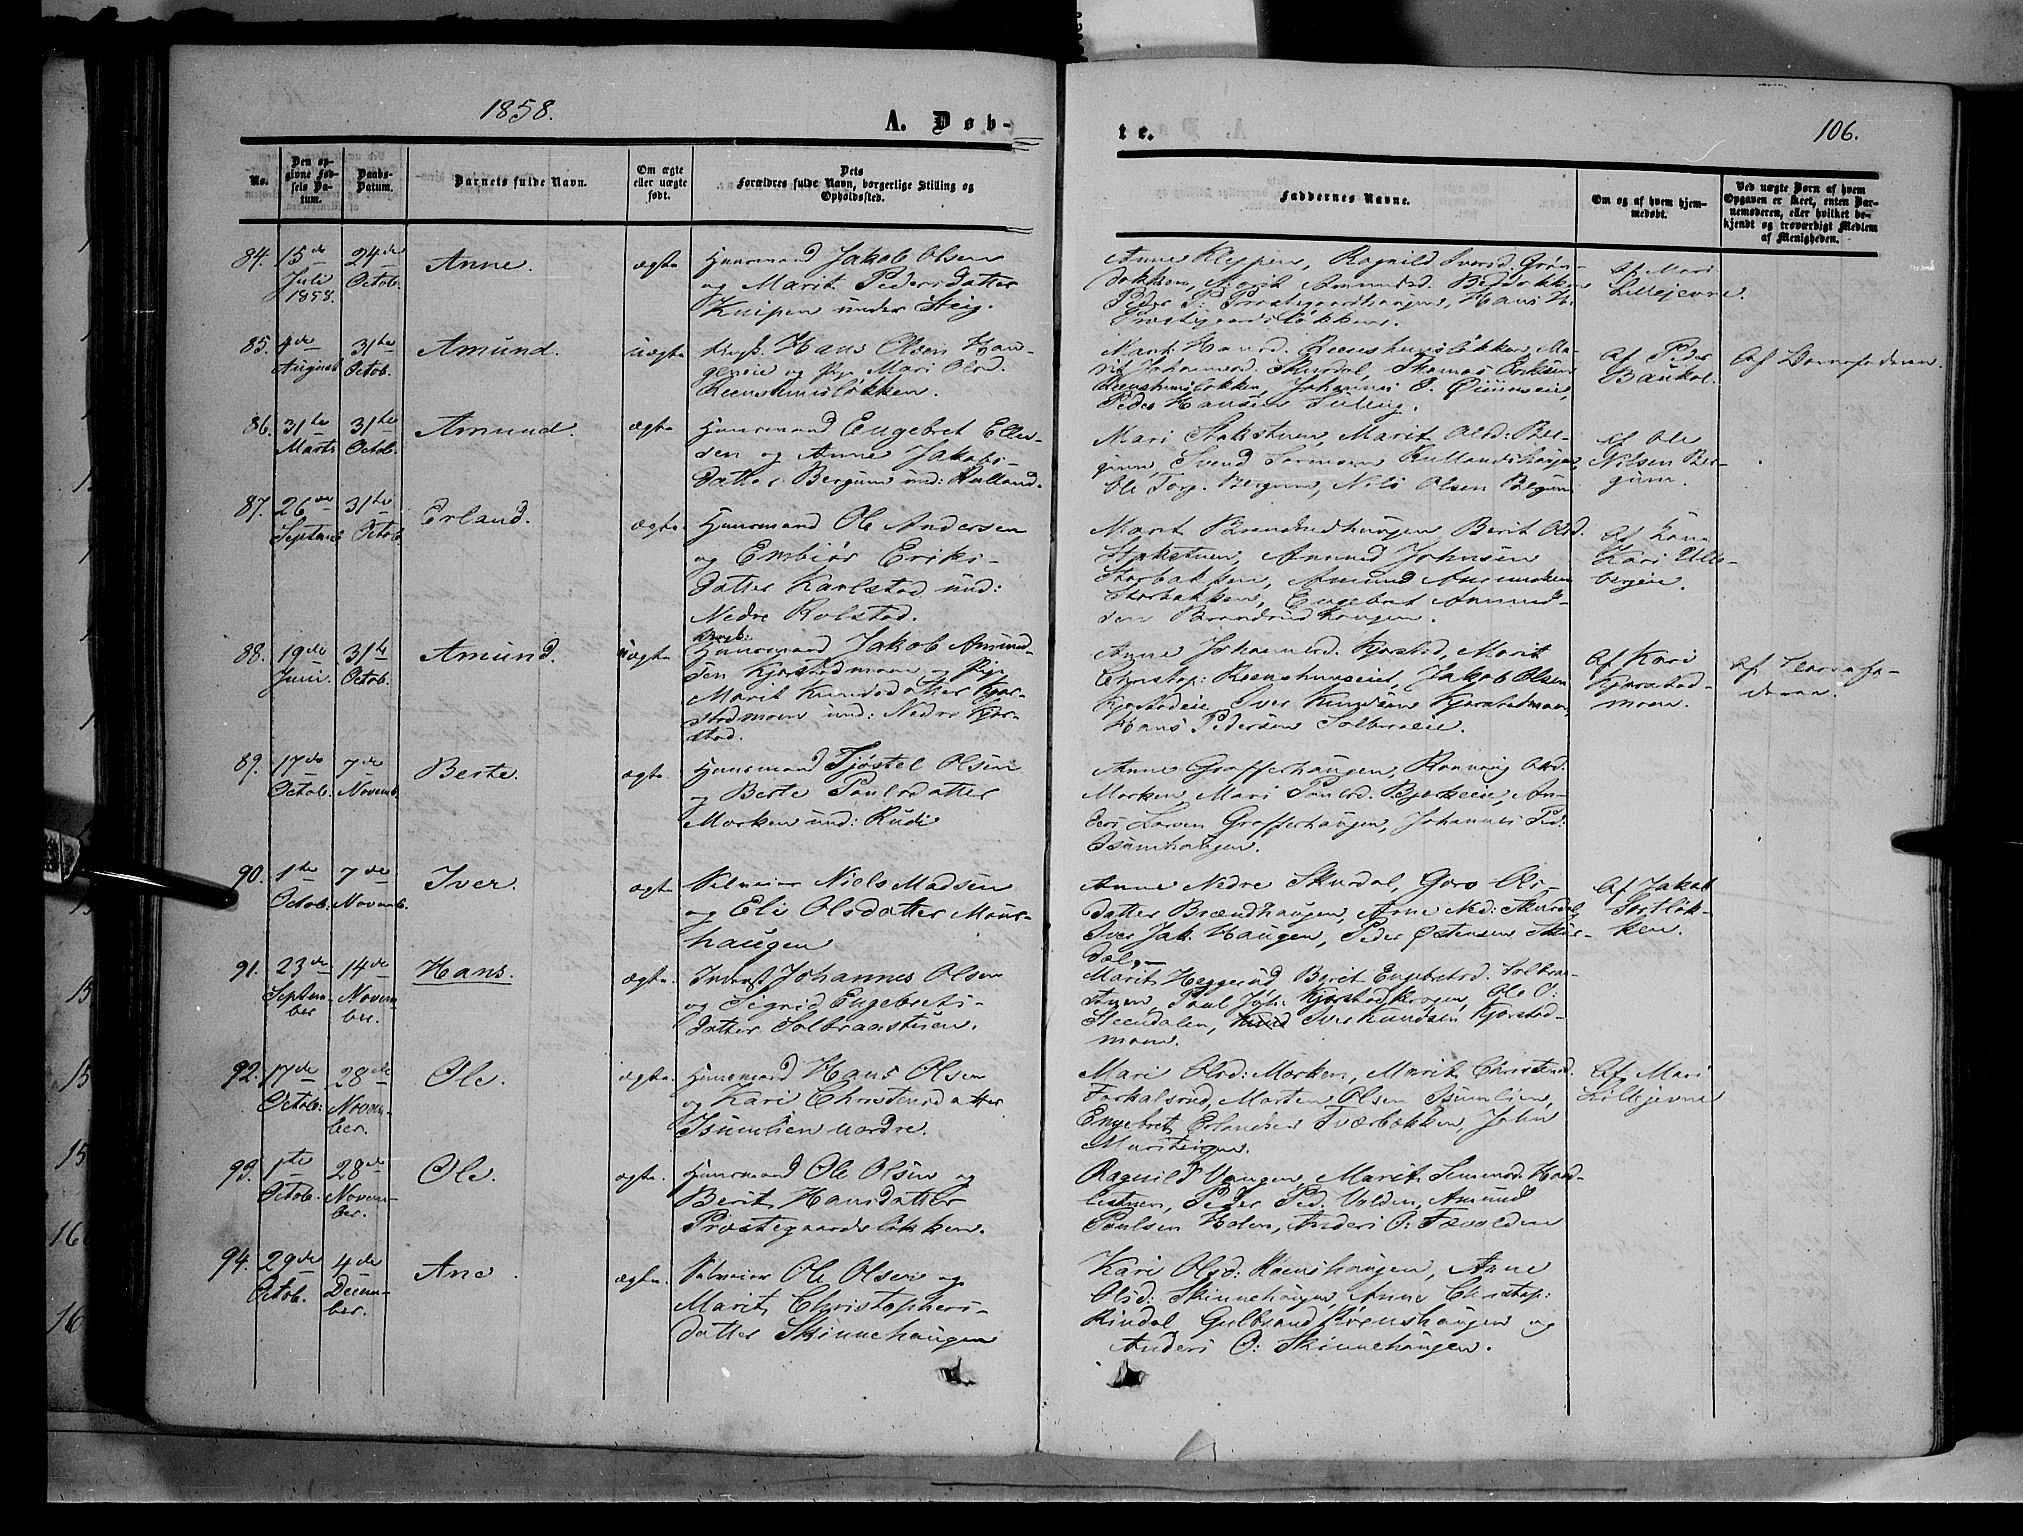 1858.
A. Døb-
te.
106.
No.
Den op-
givne Fød-
sels Da-
tum.
Daabs-
Datum.
Barnets fulde Navn.
Om ægte
eller uægte
født.
Dets
Forældres fulde Navn, borgerlige Stilling og
Opholdssted.
Faddernes Navne.
Om og af hvem hjem-
medøbt.
Ved uægte Børn af hvem
Opgaven er skeet, enten Bar-
nemoderen, eller hvilket be-
kjendt og troværdigt Medlem
af Menigheden.
84. 15de Juli 1858. 24de Octob. Anne. ægte
Huusmand Jakob Olsen
og Marit Pedersdatter
Kneipen under Steig.
Anne Kleppen, Ragnild Iversd. Grøn-
dokken, Marit Amundsd. Betdokken
Peder P. Prestegaardshaugen, Hans H.
Prestegaardsløkken.
Af Mari
Lillejevne.
85. 4de August 31te Octob. Amund. uægte
Ungk. Hans Olsen Hau-
geneie og Pige Mari Olsd.
Reenshuusløkken.
Marit Hansd. Reenshuusløkken, Ma-
rit Johannesd. Skurdal, Thomas Eriksen
Reenshuusløkken, Johannes
Peder Hansen
Af Peder
Baukol.
Af Barnefaderen.
86. 31te Marts 31te Octob. Amund. ægte
Huusmand Engebret Elle-
sen og Anne Jakobs-
datter Bergum und: Hulland.
Mari Stokstuen, Marit Olsd: Ber-
gum, Svend Sørensen
Ole Torg. Bergum, Nils Olsen Bergum
Af Ole
Nilsen Ber-
gum.
87. 26de Septemb 31te Octob. Erland. ægte
Huusmand Ole Andersen
og Embjør Eriks-
datter Karlstad und:
Nedre Kolstad.
Marit Brandrudhaugen Berit Olsd.
Stokstuen, Amund Johnsen
Storbakken, Amund Amundsen
Storbakken, Engebret Amund-
sen Brandrudhaugen.
Af Kone
Kari Ulle-
bergeie.
88. 19de Juni 31te Octob. Amund. uægte
Ungk:
Huusmand Jakob Amund-
sen Kjorstadmoen og Pige
Marit Knudsdatter Kjor-
stadmoen und: Nedre Kjor-
stad.
Anne Johannesd. Kjorstad, Marit
Christop: Reenshuuseiet, Jakob Olsen
Kjorstadeie Iver Knudsen Kjorstadmoen,
Hans Pedersen Solbergeie.
Af Kari
Kjorstad-
moen.
Af Barnefa-
deren.
89. 17de Octob. 7de Novemb. Berte. ægte
Huusmand Tjøstel Olsen
og Berte Paulsdatter
Morken und: Rudi
Anne Grafferhaugen, Rønnaug Olsd.
Morken, Mari Paulsd. Bjerkeie, An-
ders Larsen Grafferhaugen, Johannes Ped:
Isumhaugen.
90. 1te Octob. 7de Novemb. Iver. ægte
Selveier Niels Madsen
og Eli Olsdatter Mour-
haugen
Anne Nedre Skurdal, Goro Ols-
datter Brændhaugen, Arne Ned: Skurdal,
Iver Jak. Haugen, Peder Østensen Skur-
dal,
Af Jakob
Sortløk-
ken.
91. 23de Septem-
ber 14de Novem-
ber. Hans. ægte.
Inderst Johannes Olsen
og Sigrid Engebrets-
datter Solbraastuen.
Marit Heggerud, Berit Engebretsd. Solbraa-
stuen, Paul Joh: Kjorstadhaugen, Ole O:
Steendalen, Knud Iver Knudsen Kjorstad-
moen.
92. 17de Octob: 28de Novem-
ber. Ole. ægte.
Huusmand Hans Olsen
og Kari Christensdatter
Isumlien nordre.
Mari Olsd: Morken, Marit Christensd.
Forkalsrud, Morten Olsen Isumlien,
Engebret Erlandsen Tværbakken, John
Mursteigen.
Af Mari
Lillejevne
93. 1te Octob. 28de Novem-
ber. Ole. ægte.
Huusmand Ole Olsen og
Berit Hansdatter
Prostegaardsløkken.
Ragnild Vangen, Marit Simensd. Hød-
lestuen, Peder Ped. Volden, Amund
Paulsen Holen, Anders O: Fævolden
94. 29de Octob. 4de Decem-
ber. Ane. ægte.
Selveier Ole Olsen og
Marit Christophers-
datter Skinnehaugen
Kari Olsd: Reenshaugen, Anne
Olsd: Skinnehaugen, Anne Christop:
Rindal Gulbrand Reenshaugen og
Anders O: Skinnehaugen.